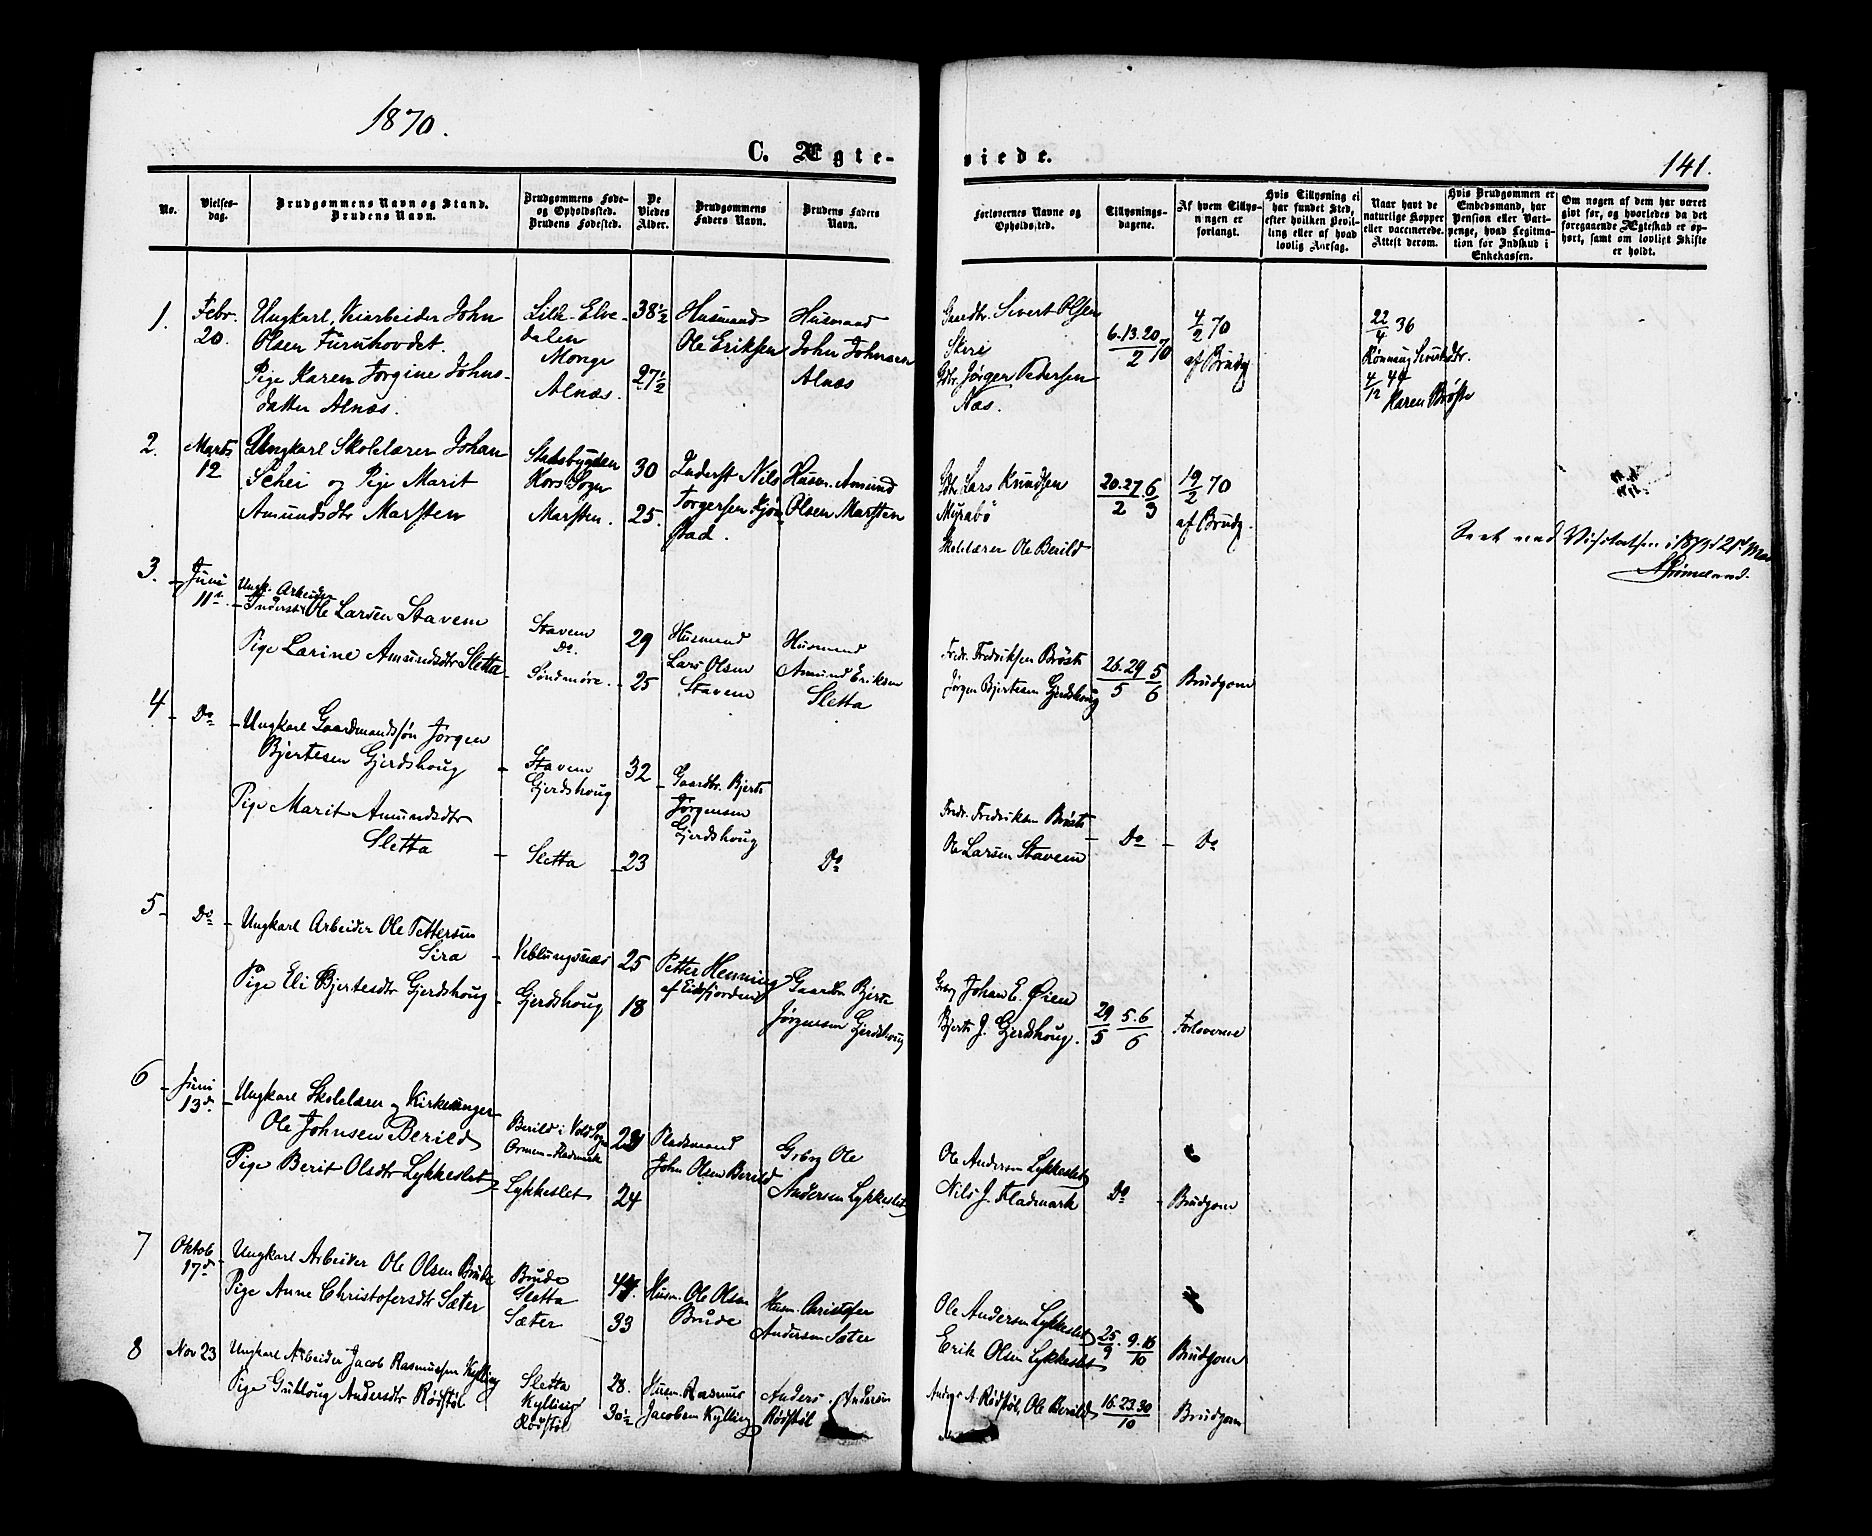 1870.
C. Ægte-
viede.
141.
No.
Vielses-
dag.
Brudgommens Navn og Stand.
Brudens Navn.
Brudgommens Føde-
og Opholdssted.
Brudens Fødested.
De
Viedes
Alder.
Brudgommens
Faders Navn.
Brudens Faders
Navn.
Forlovernes Navne og
Opholdssted.
Tillysnings-
dagene.
Af hvem Tillys-
ningen er
forlangt.
Hvis Tillysning ei
har fundet Sted,
efter hvilken Bevil-
ling eller af hvad
lovlig Aarsag.
Naar havt de
naturlige Kopper
eller vaccinerede.
Attest derom.
Hvis Brudgommen er
Embedsmand, har
Pension eller Vart-
penge, hvad Legitima-
tion for Indskud i
Enkekassen.
Om nogen af dem har været
gift før, og hvorledes da det
foregaaende Ægteskab er op-
hørt, samt om lovligt Skifte
er holdt.
1.
Febr.
20.
Ungkarl, Veiarbeider John
Olsen Furuhovdet.
Pige Karen Jorgine Johns-
datter Alnæs.
Lille-Elve-
dalen
Monge
Alnæs.
38½
27½
Husmand
Ole Eriksen
Husmand
John Johnsen
Alnæs
Gaardbr. Sivert Olsen
Skiri
Gdbr. Jørgen Pedersen
Næs.
6.13.20/2 70
4/2 70
af Brudg
22/4 36
Rønnaug Sivertsdtr.
4/12 44
Karen Brøste
2.
Marts
12
Ungkarl Skolelærer Johan
Schei og Pige Marit
Amundsdtr Marsten
Stadsbygden
Kors Sogn
Marsten.
30
25.
Inderst Nils
Torgersen Kjøn-
stad.
Husm. Amund
Olsen Marsten
Gdbr Lars Knudsen
Myrabø
Skolelærer Ole Berild
20.27/2 6/3
19/2 70
af Brudg.
Seet ved Visitatsen i 1873 d 21d Mai
3.
Juni
11te
Ungk. Arbeider
Inderst Ole Larsen Stavem
Pige Larine Amundsdtr Sletta
Stavem
Do.
Søndmøre.
29
25
Husmand
Lars Olsen
Stavem
Husmand
Amund Eriksen
Sletta
Fredr. Fredriksen Brøste
Jørgen Bjertesen Gjerdshoug
26.29/5 5/6
Brudgom
4
Do
Ungkarl Gaardmandssøn Jørgen
Bjertesen Gjerdshoug
Pige Marit Amundsdtr
Sletta
Stavem
Gjerdshoug
Sletta
32
23
Gaardbr. Bjerte
Jørgensen
Gjerdshoug
Do
Fredr. Fredriksen Brøste
Ole Larsen Stavem
Do
Do
5
Do
Ungkarl Arbeider Ole Pettersen
Sira
Pige Eli Bjertesdtr Gjerdshoug
Veblungsnæs
Gjerdshoug
25
18
Petter Henning
af Eidsfjorden
Gaardbr Bjerte
Jørgensen Gjerdshoug
Johan E. Øien
Bjerte J. Gjerdshoug.
29/5 5.6/6
Forloverne
6
Juni
13de
Ungkarl Skolelærer og Kirkesanger
Ole Johnsen Berild
Pige Berit Olsdtr Lykkeslet
Berild i Vold Sogn
Ormem-Fladmark
Lykkeslet
24
Pladsmand
John Olsen Berild
Grbrg Ole
Andersen Lykkeslet
Ole Andersen Lykkeslet
Nils J. Fladmark
Do
Brudgom
7
Oktob
17de
Ungkarl Arbeider Ole Olsen Brude
Pige Anne Christofersdtr Sæter
Brude
Sletta
Sæter
44.
33
Husm. Ole Olsen
Brude
Husm. Christofer
Andersen Sæter
Ole Andersen Lykkeslet
Erik Olsen Lykkeslet
25/9. 9.16/10
Brudgom
8
Nov 23
Ungkarl Arbeider Jacob Rasmussen Kylling
Pige Guttoug Andersdtr Rødstøl
Sletta
Kylling
Rødstøl
28.
30½
Husm. Rasmus
Jacobsen Kylling
Anders Andersen
Rødstøl
Anders A. Rødstøl, Ole Berild
16.23.30/10
Brudgom